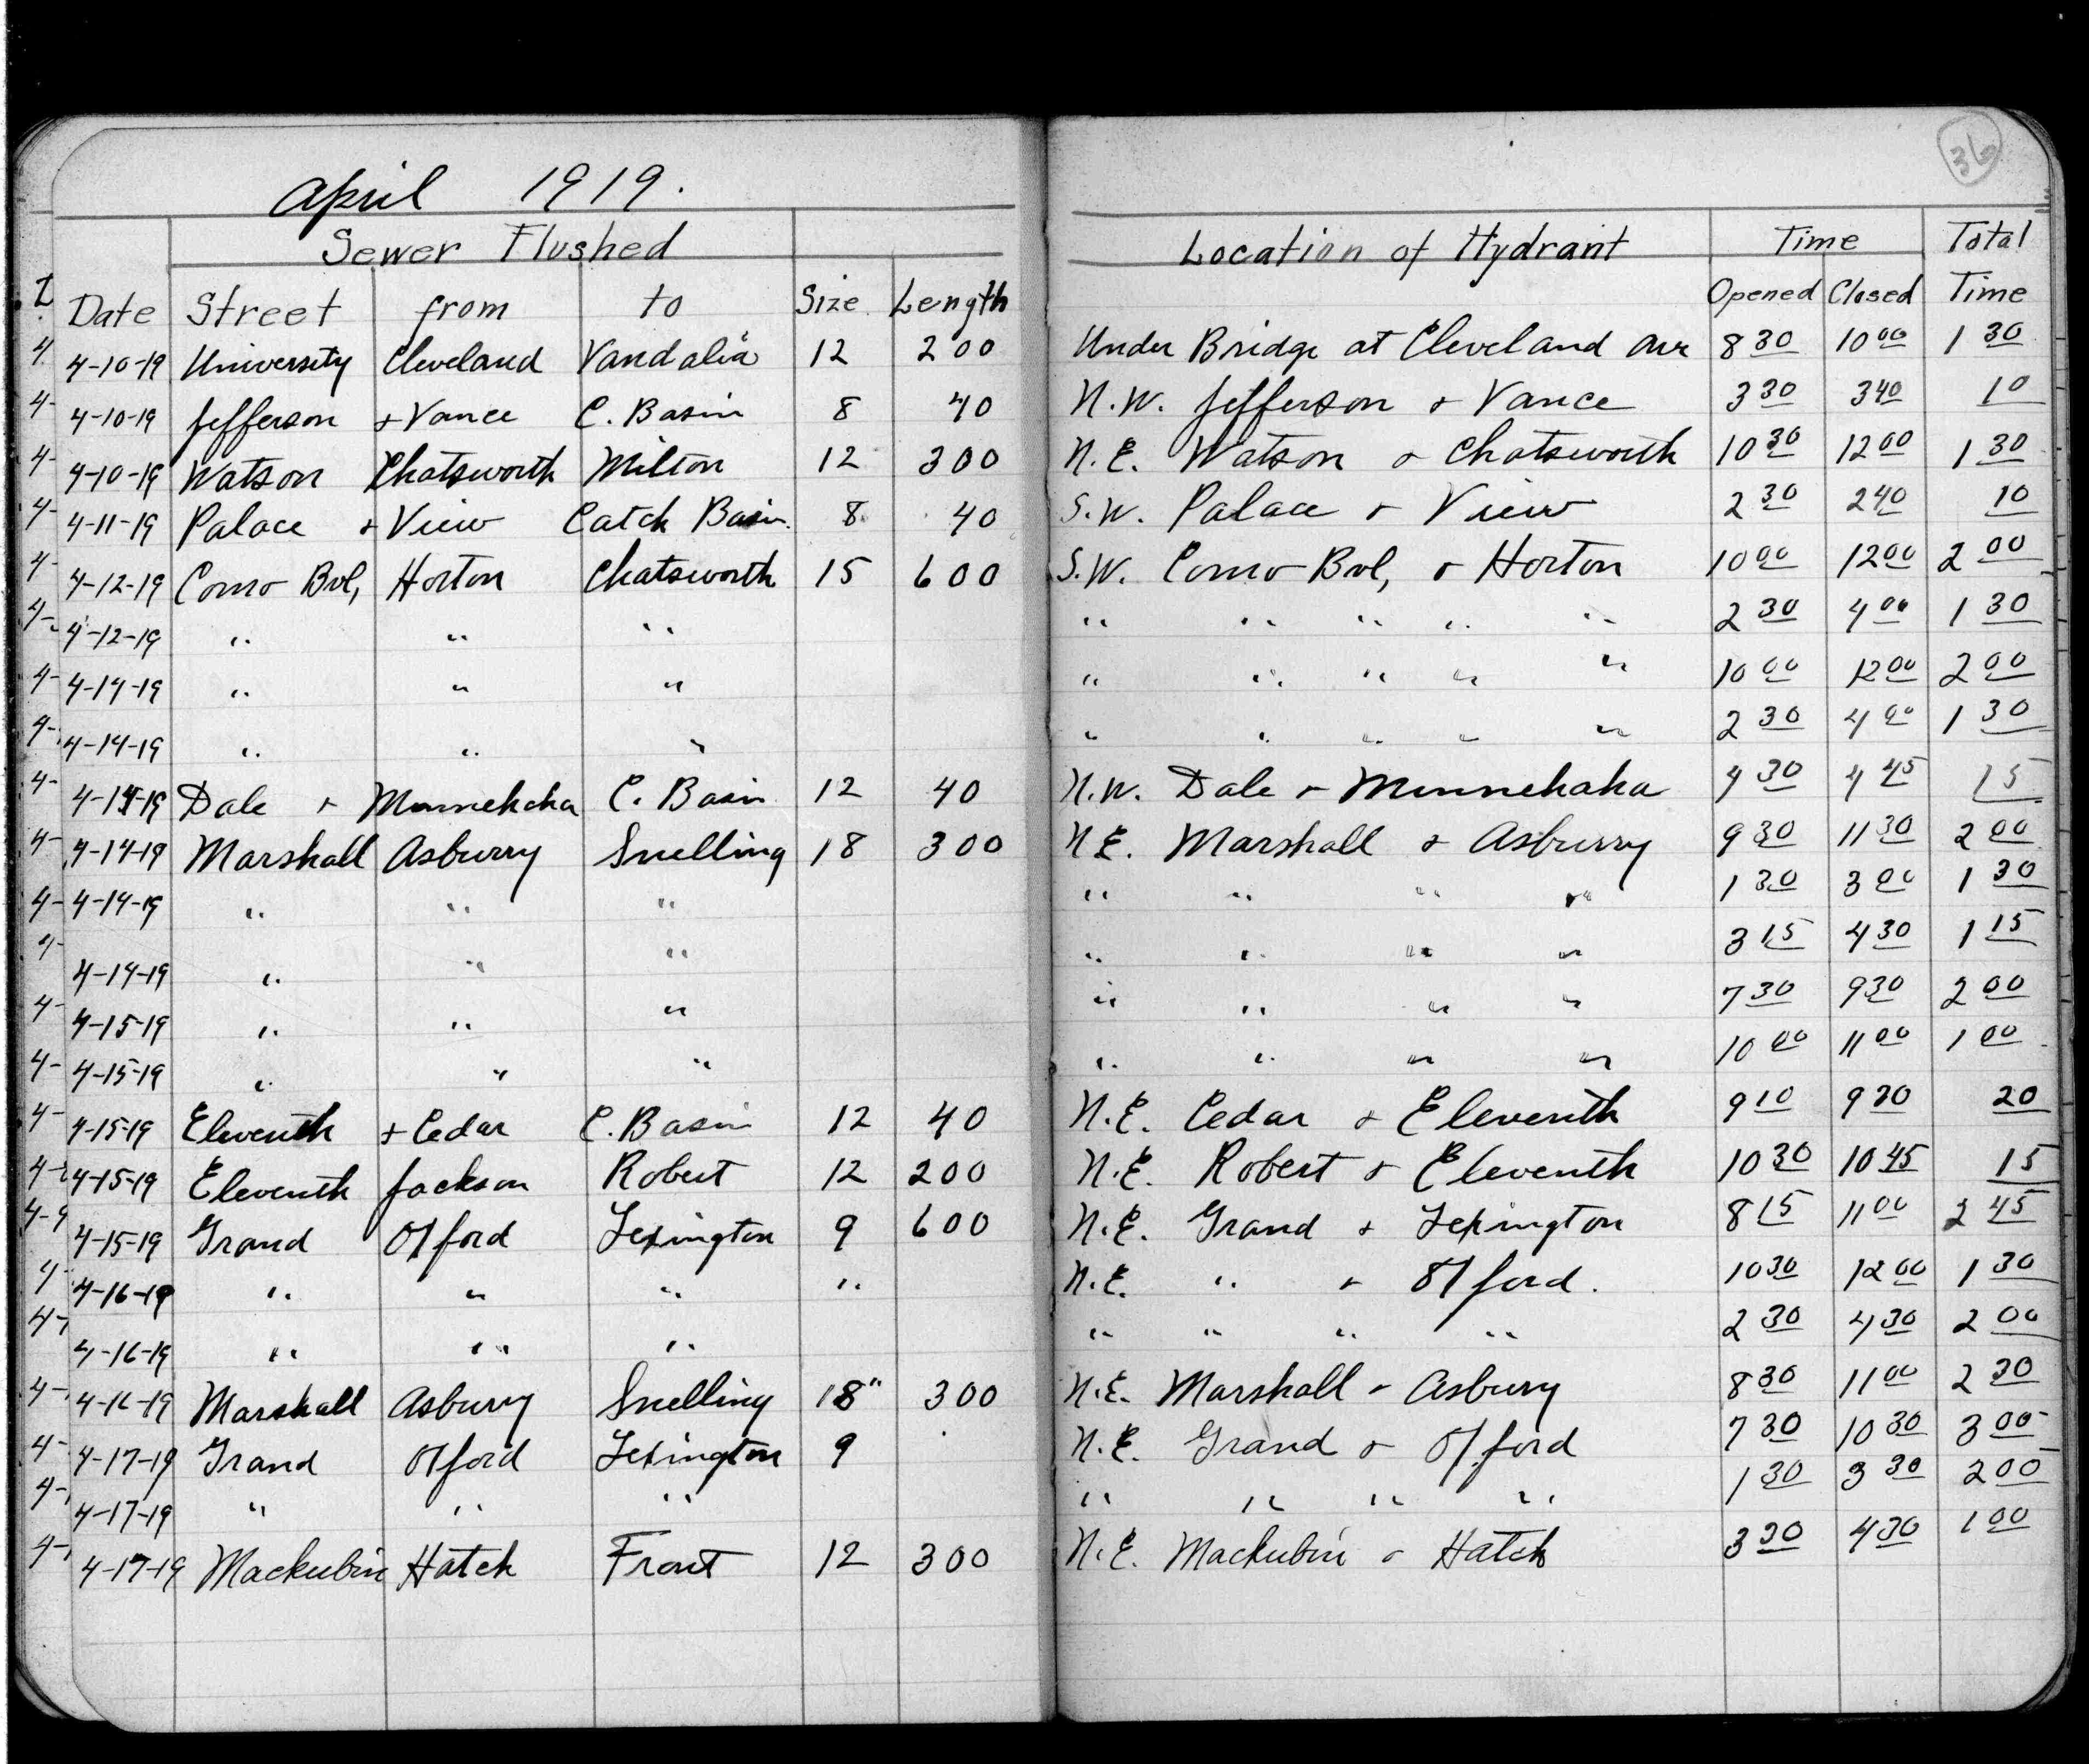 36
April 1919.
Sewer Flushed Location of Hydrant Time Total
Date Street from to Size Length Opened Closed Time
4-10-19 University Cleveland Vandalia 12 200 Under Bridge at Cleveland Ave 8 30 10 00 1 30
4-10-19 Jefferson + Vance C. Basin 8 40 N.W. Jefferson + Vance 3 30 3 40 10
4-10-19 Watson Chatsworth Milton 12 300 N.E. Watson + Chatsworth 10 30 12 00 1 30
4-11-19 Palace + View Catch Basin 8 40 S.W. Palace + View 2 30 2 40 10
4-12-19 Como Bvl, Horton Chatsworth 15 600 S.W. Como Bvl, + Horton 10 00 12 00 2 00
4-12-19 " " " " " " " " 2 30 4 00 1 30
4-14-19 " " " " " " " " 10 00 12 00 2 00
4-14-19 " " " " " " " " 2 30 4 00 1 30
4-14-19 Dale + Minnehaha C. Basin 12 40 N.W. Dale + Minnehaha 4 30 4 45 15
4-14-19 Marshall Asburry Snelling 18 300 N.E. Marshall + Asburry 9 30 11 30 2 00
4-14-19 " " " " " " " 1 30 3 00 1 30
4-14-19 " " " " " " " 3 15 4 30 1 15
4-15-19 " " " " " " " 7 30 9 30 2 00
4-15-19 " " " " " " " 10 00 11 00 1 00
4-15-19 Eleventh + Cedar C. Basin 12 40 N.E. Cedar + Eleventh 9 10 9 30 20
4-15-19 Eleventh Jackson Robert 12 200 N.E. Robert + Eleventh 10 30 10 45 15
4-15-19 Grand Oxford Lexington 9 600 N.E. Grand + Lexington 8 15 11 00 2 45
4-16-19 " " " " N.E. " + Oxford. 10 30 12 00 1 30
4-16-19 " " " " " " " 2 30 4 30 2 00
4-16-19 Marshall Asbury Snelling 18" 300 N.E. Marshall + Asbury 8 30 11 00 2 30
4-17-19 Grand Oxford Lexington 9 N.E. Grand + Oxford 7 30 10 30 3 00
4-17-19 " " " " " " " 1 30 3 30 2 00
4-17-19 Mackubin Hatch Front 12 300 N.E. Mackubin + Hatch 3 30 4 30 1 00